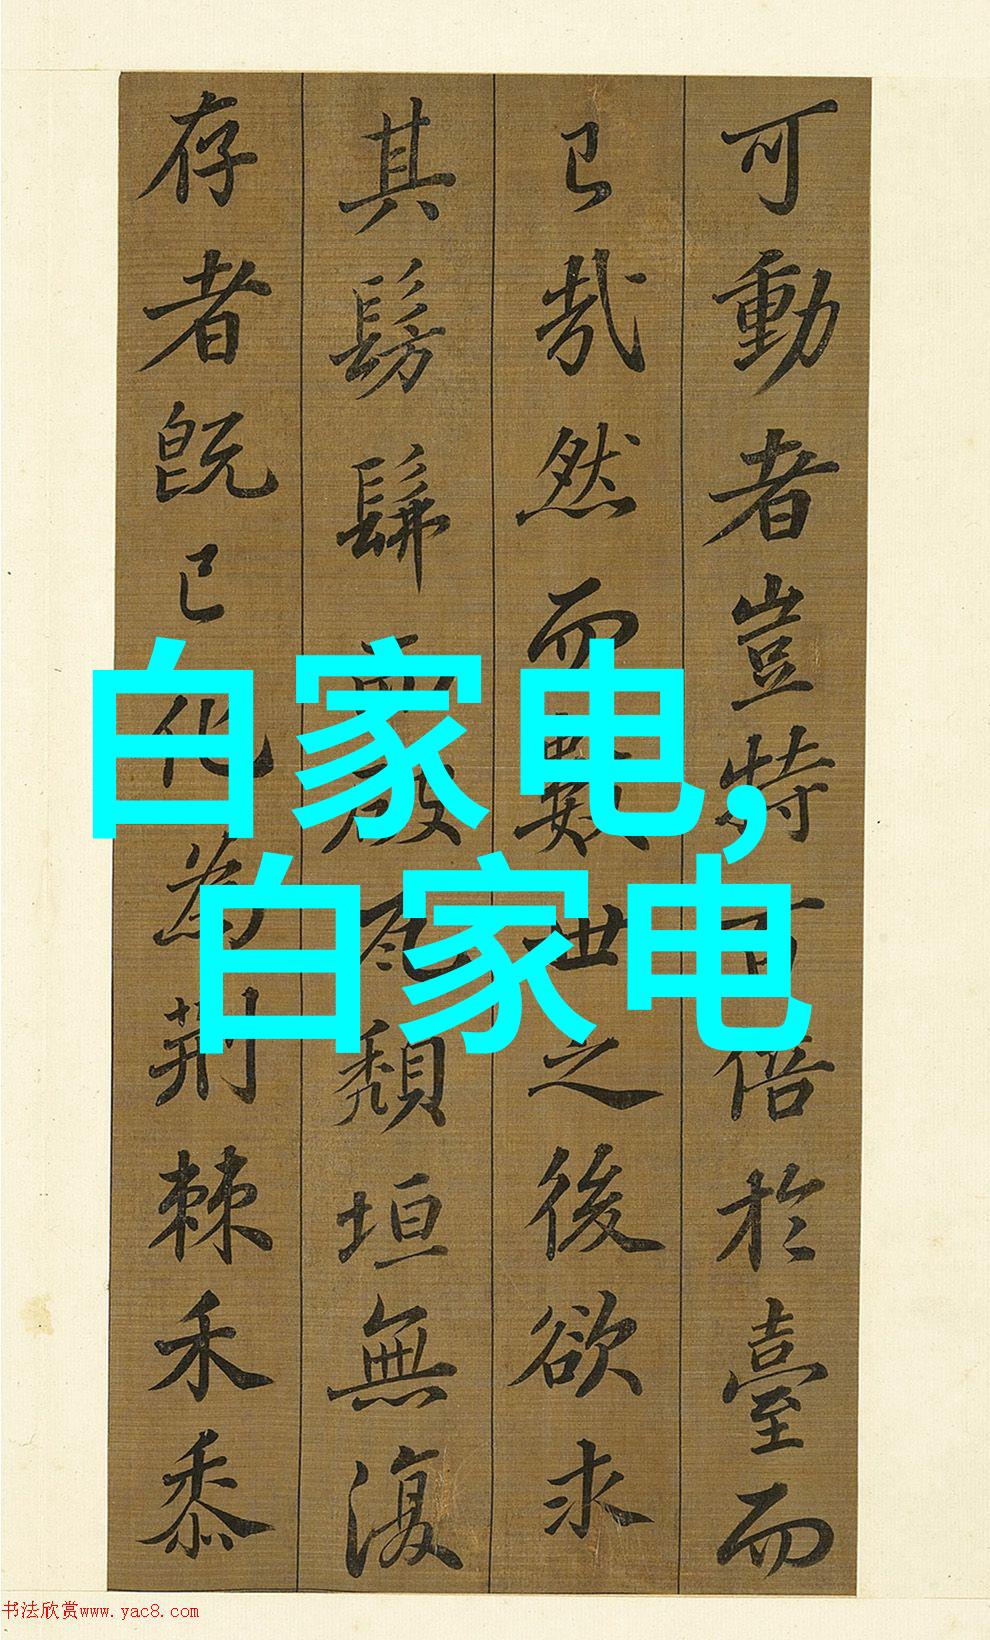 可動者豈特百倍於臺而
已哉然而數世之後欲求
其髣髴而破瓦頹垣無復
存者既已化為荊棘禾黍
白家电,
白家电
书法欣赏www.yac8.com